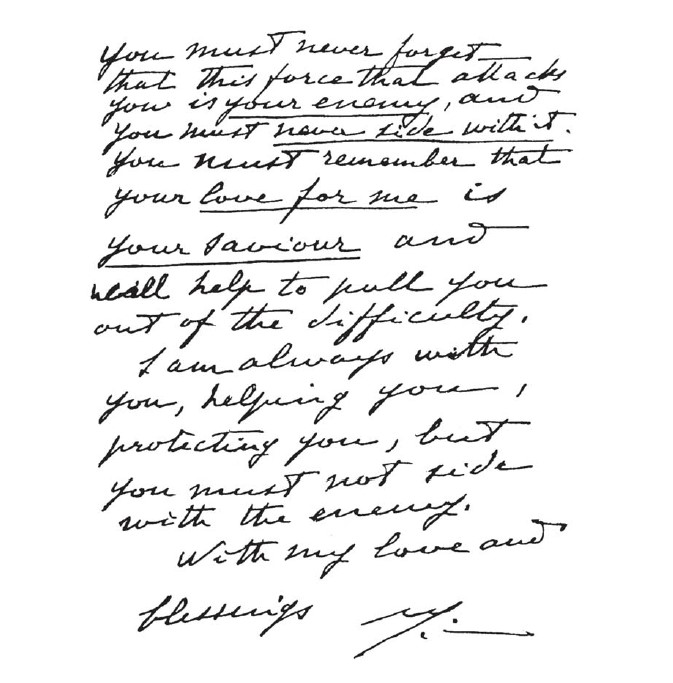 You must never forget
that this force that attacks
you is your enemy, and
you must never side with it.
You must remember that
your love for me is
your saviour and
will help to pull you
out of the difficulty.
I am always with
you, helping you,
protecting you, but
you must not side
with the enemy.
With my love and
blessings